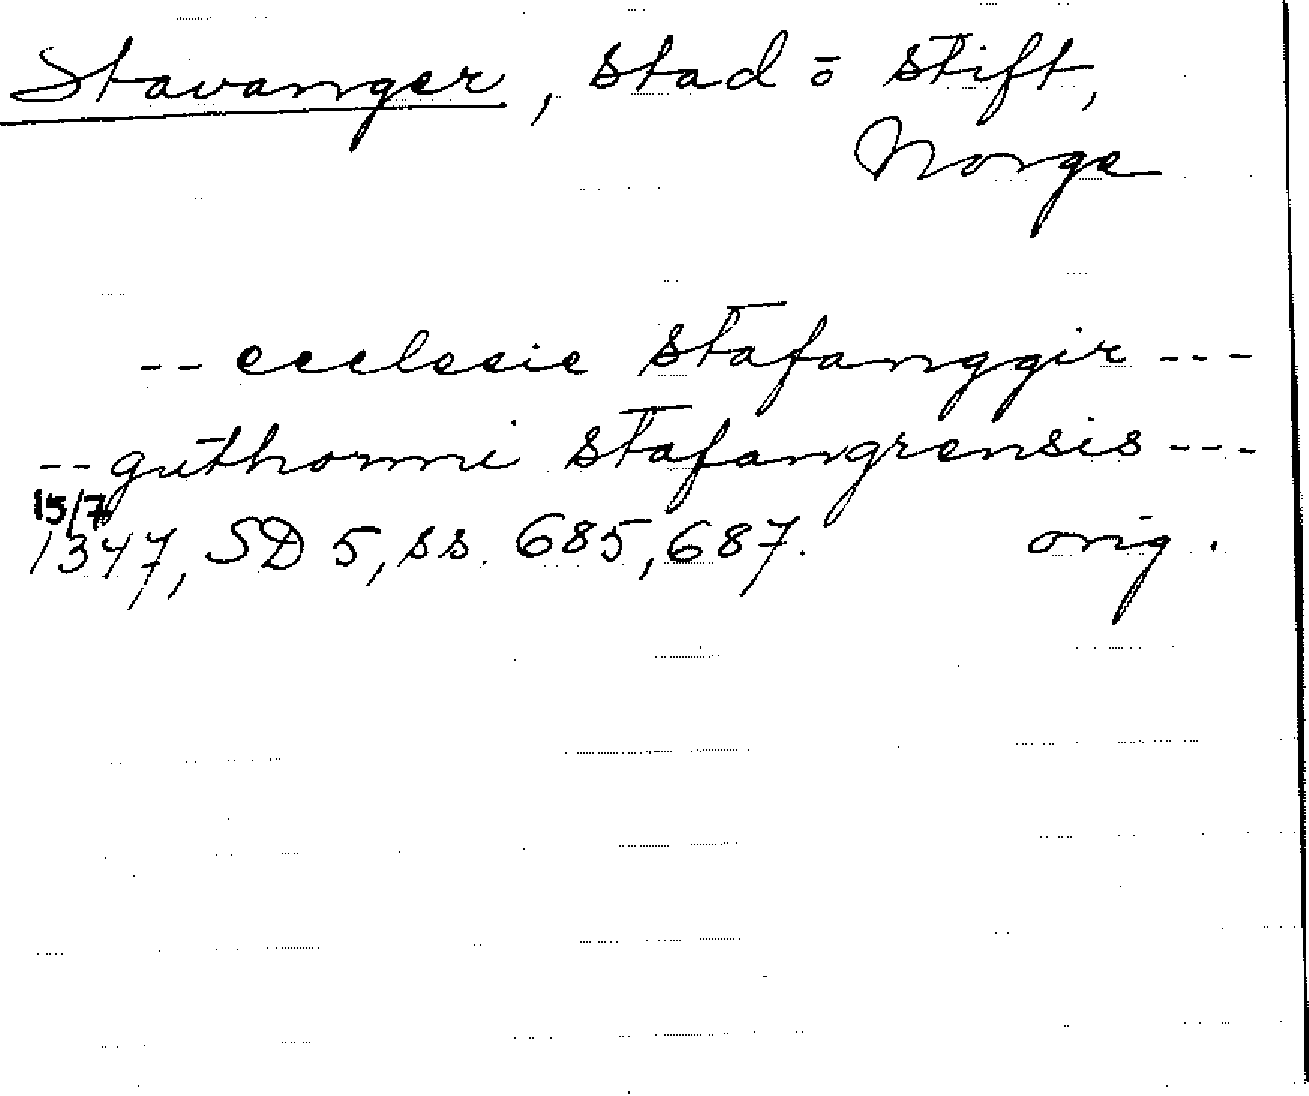 Stavanger, stad o stift,
Norge
-- ecclesie stafanggir ---
-- guthormi stafangrensis ---
15/7
1347, SD 5, ss. 685, 687. orig.